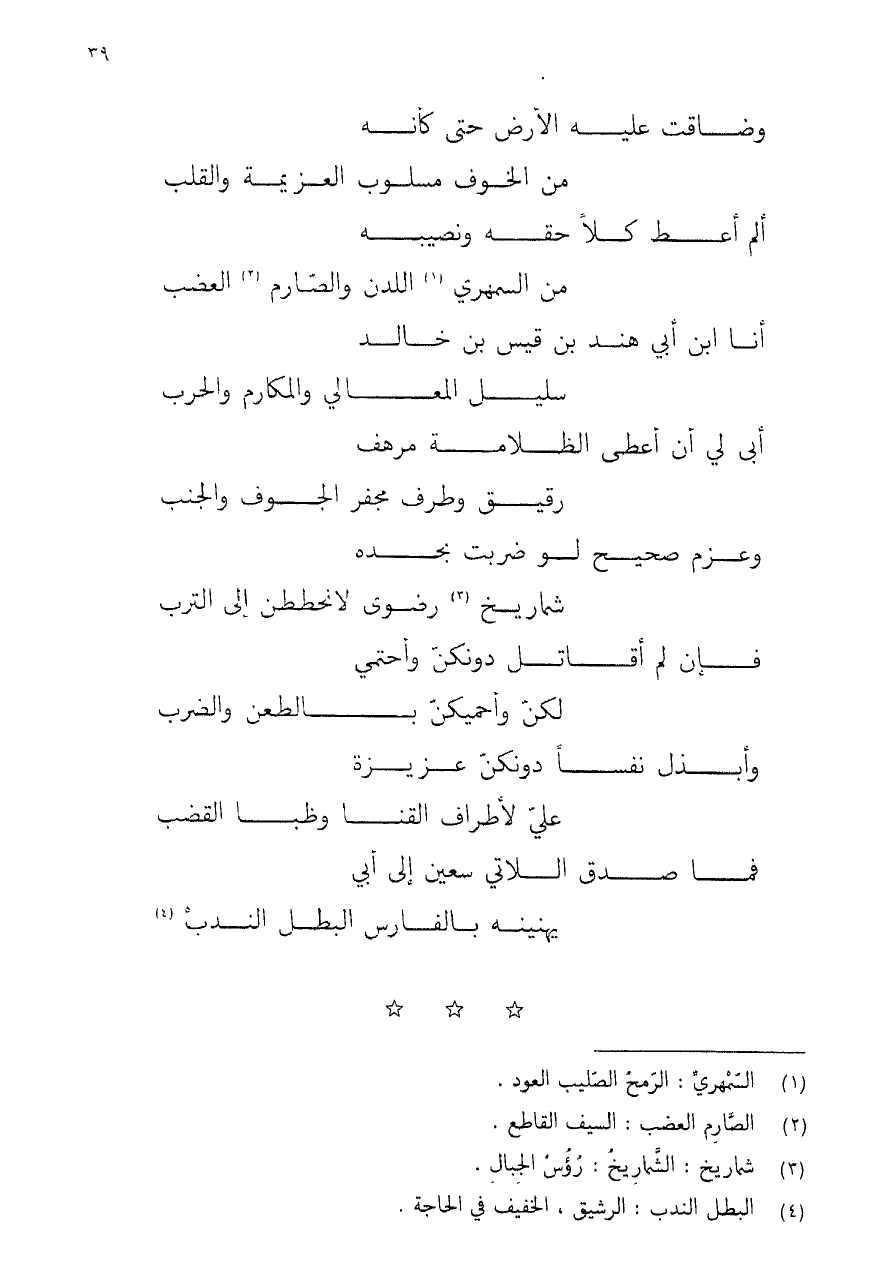 ٣٩
وضاقت عليه الأرض حتى كأنه
من الخوف مسلوب العزيمة والقلب
ألم أعط كلاً حقه ونصيبه
من السمهري (١) اللدن والصّارم (٢) العضب
أنا ابن أبي هند بن قيس بن خالد
سليل المعالي والمكارم والحرب
أبى لي أن أعطى الظلامة مرهف
رقيق وطرف مجفر الجوف والجنب
وعزم صحيح لو ضربت بحده
شماريخ (٣) رضوى لانحططن إلى الترب
فإن لم أقاتل دونكنّ وأحتمي
لكنّ وأحميكنّ بالطعن والضرب
وأبذل نفساً دونكنّ عزيزة
عليّ لأطراف القنا وظبا القضب
فما صدق اللاتي سعين إلى أبي
يهنينه بالفارس البطل الندبْ (٤)
☆ ☆ ☆
(١) السَّمْهريُّ : الرّمحُ الصّليب العود .
(٢) الصَّارِم العضب : السيف القاطع .
(٣) شماريخ : الشَّمارِيخُ : رُؤُسُ الجِبالِ .
(٤) البطل الندب : الرشيق ، الخفيف في الحاجة .